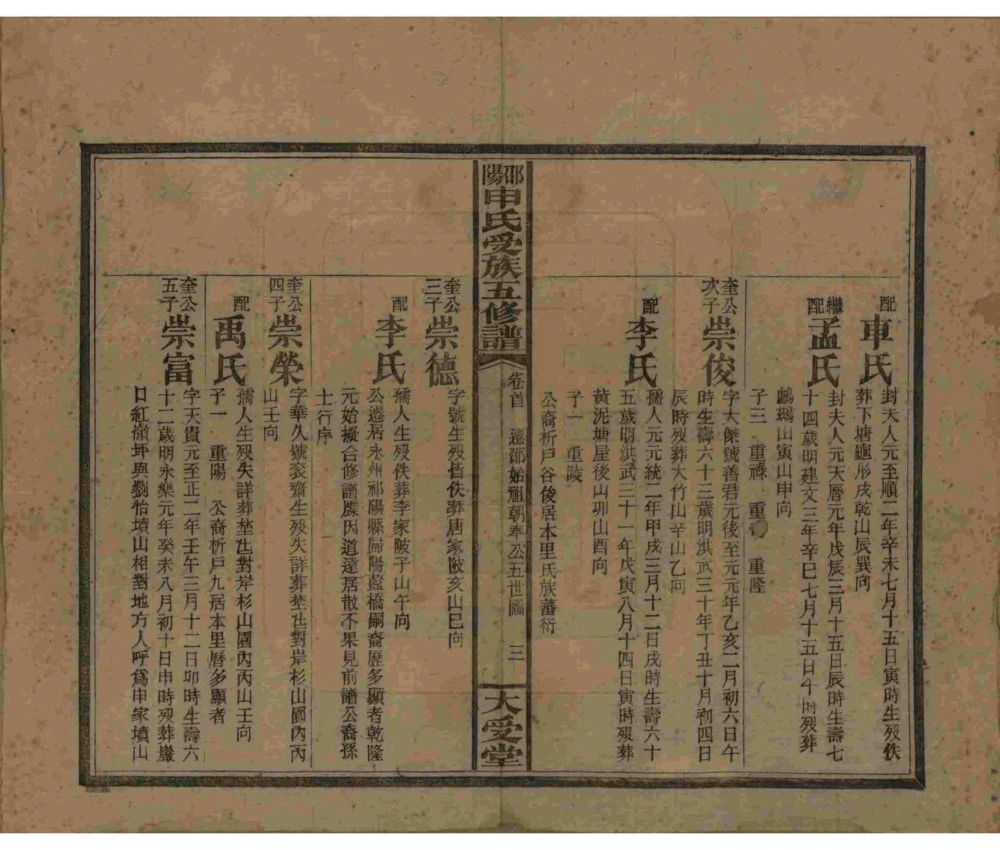 配
車氏
封夫人元至順二年辛未七月十五日寅時生歿佚
葬下塘龜形戌乾山辰巽向
繼配
孟氏
封夫人元天曆元年戊辰三月十五日辰時生壽七
十四歲明建文三年辛巳七月十五日午時歿葬
鸕鷀山寅山申向
子三 重祿 重 重隆
奎公次子
崇俊
字大傑號善君元後至元元年乙亥二月初六日午
時生壽六十三歲明洪武三十年丁丑十月初四日
辰時歿葬大竹山辛山乙向
配
李氏
孺人元元統二年甲戌三月十二日戌時生壽六十
五歲明洪武三十一年戊寅八月十四日寅時歿葬
黃泥塘屋後山卯山酉向
子一 重陵
公裔析戶谷俊居本里氏族蕃衍
邵陽申氏受族五修譜
卷首 遷邵始祖朝奉公五世圖 三
大受堂
奎公三子
崇德
字號生歿皆佚葬唐家陂亥山巳向
配
李氏
孺人生歿佚葬李家陂子山午向
公遷居永州祁陽縣歸陽藍橋嗣裔歷多顯者乾隆
元始擬合修譜牒因道遠居散不果見前譜公裔孫
士行序
奎公四子
崇榮
字華久號裘齋生歿失詳葬塟㘯對岸杉山園內丙
山壬向
配
禹氏
孺人生歿失詳葬塟㘯對岸杉山園內丙山壬向
子一 重陽 公裔析戶九居本里曆多顯者
奎公五子
崇富
字天貴元至正二年壬午三月十二日卯時生壽六
十二歲明永樂元年癸未八月初十日申時歿葬巌
口紅嶺坪與劉怡墳山相對地方人呼爲申家墳山